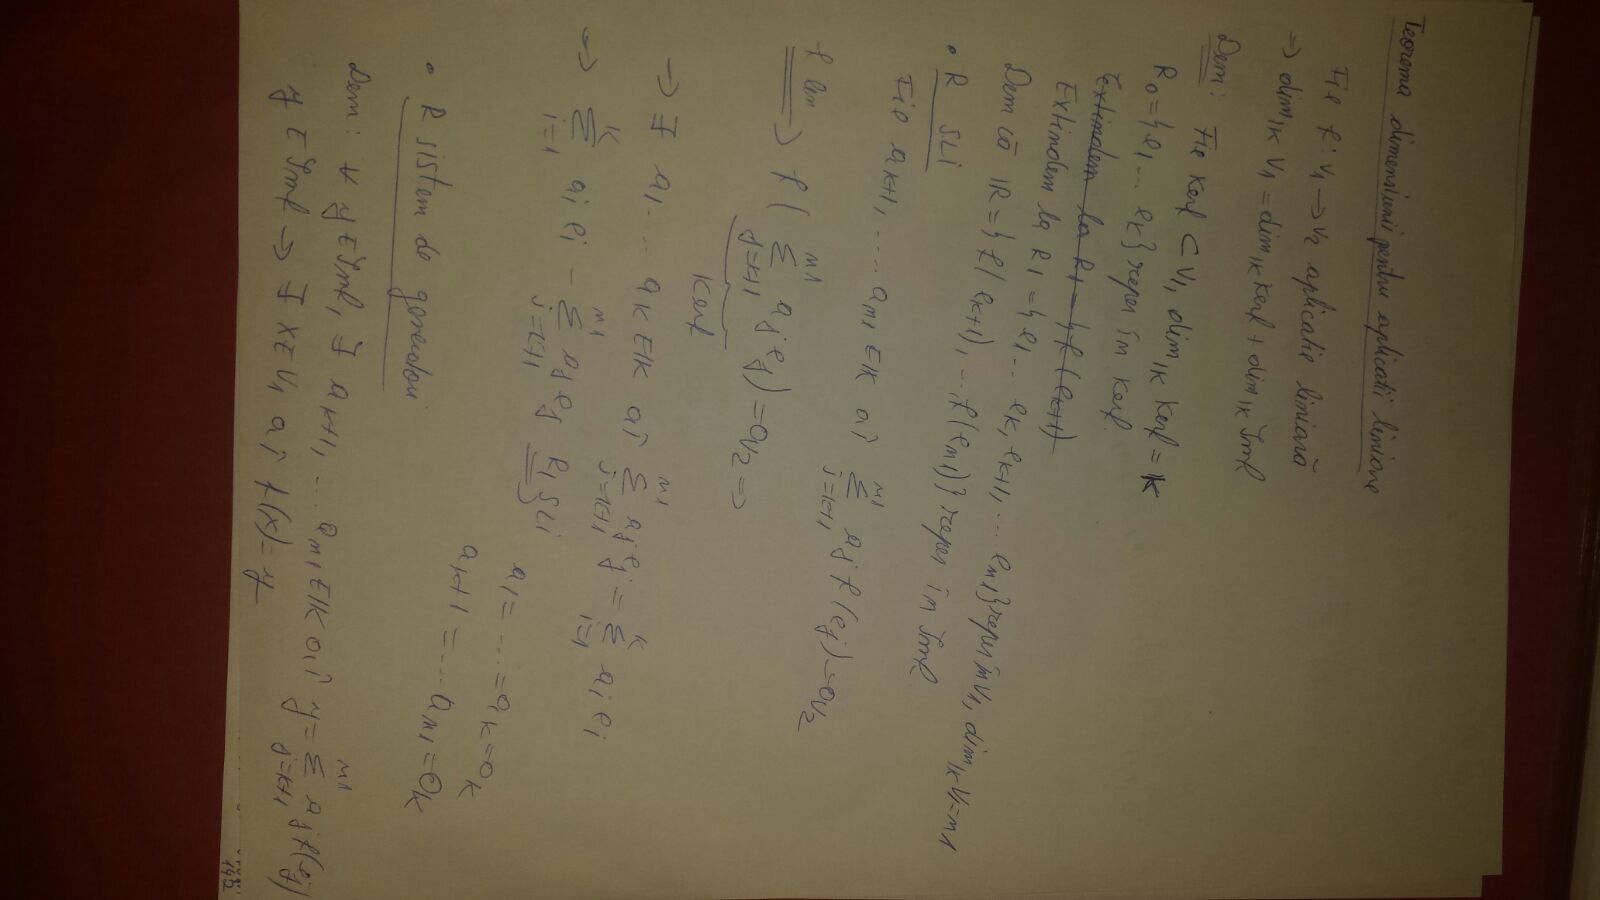 Teorema dimensiunii pentru aplicatii liniare
Fie f: V₁ → V₂ aplicatie liniară
⇒ dim_𝕂 V₁ = dim_𝕂 Kerf + dim_𝕂 Imf
Dem: Fie Kerf ⊂ V₁, dim_𝕂 Kerf = k
R₀ = {e₁ ... eₖ} reper în Kerf
Extindem la R₁ = {f(eₖ₊₁)
Extindem la R₁ = {e₁ ... eₖ, eₖ₊₁, ... eₙ₁} reper în V₁, dim_𝕂 V₁ = n1
Dem că R = {f(eₖ₊₁), ... f(eₙ₁)} reper în Imf
• R SLI
Fie aₖ₊₁, .... aₙ₁ ∈ 𝕂 aî Σ_{j=k+1}^{n1} aⱼ f(eⱼ) = 0_{V₂}
f lin ⇒ f( Σ_{j=k+1}^{n1} aⱼ eⱼ) = 0_{V₂} ⇒
Kerf
→ ∃ a₁ ... aₖ ∈ 𝕂 aî Σ_{j=k+1}^{n1} aⱼ eⱼ = Σ_{i=1}^{k} aᵢ eᵢ
→ Σ_{i=1}^{k} aᵢ eᵢ - Σ_{j=k+1}^{n1} aⱼ eⱼ R₁ SLI
a₁ = .... = aₖ = 0_𝕂
aₖ₊₁ = .... aₙ₁ = 0_𝕂
• R sistem de generatori
Dem: ∀ y ∈ Imf, ∃ aₖ₊₁, ... aₙ₁ ∈ 𝕂 aî y = Σ_{j=k+1}^{n1} aⱼ f(eⱼ)
y ∈ Imf → ∃ x ∈ V₁ aî f(x) = y